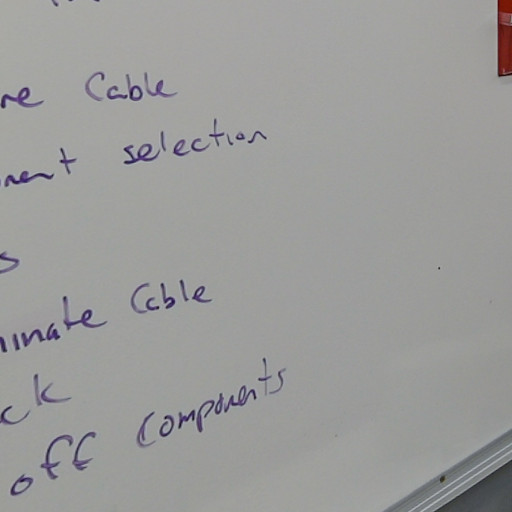 re Cable
nent selection
s
inate Cable
ck
off components